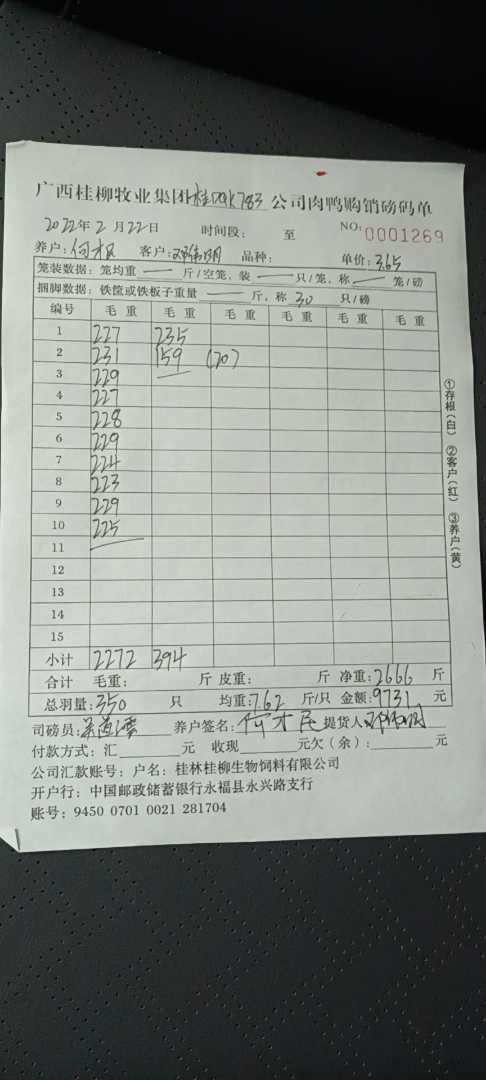 广西桂柳牧业集团桂 公司肉鸭购销磅码单
2022年2月22日 时间段: 至 NO: 0001269
养户: 客户: 邓伟明 品种: 单价: 3.65
笼装数据: 笼均重 — 斤/空笼, 装 — 只/笼, 称 — 笼/磅
捆脚数据: 铁筐或铁板子重量 — 斤, 称 30 只/磅
编号 毛 重 毛 重 毛 重 毛 重 毛 重 毛 重
1 227 235
2 231 159 (20)
3 229
4 227
5 228
6 229
7 224
8 223
9 229
10 225
11
12
13
14
15
小计 2272 394
合计 毛重: 斤 皮重: 斤 净重: 2666 斤
总羽量: 350 只 均重: 7.62 斤/只 金额: 9731 元
司磅员: 养户签名: 提货人 邓伟明
付款方式: 汇 元 收现 元欠(余): 元
公司汇款账号: 户名: 桂林桂柳生物饲料有限公司
开户行: 中国邮政储蓄银行永福县永兴路支行
账号: 9450 0701 0021 281704
①存根(白) ②客户(红) ③养户(黄)